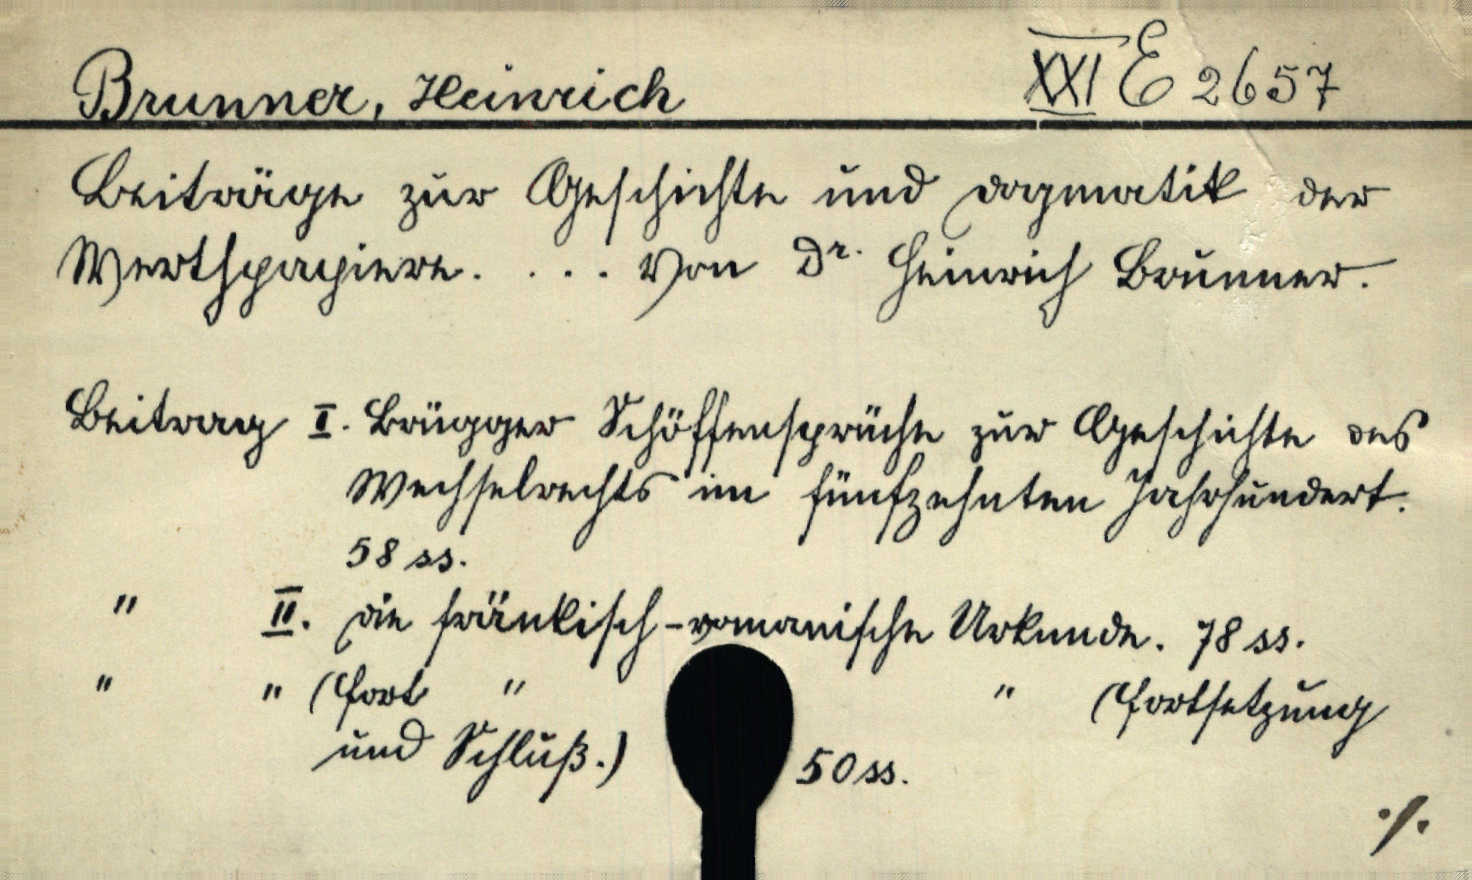 Brunner, Heinrich XXI E 2657
Beiträge zur Geschichte und Dogmatik der
Werthpapiere. ... Von Dr. Heinrich Brunner.
Beitrag I. Brügger Schöffensprüche zur Geschichte des
Wechselrechts im fünfzehnten Jahrhundert.
58 ss.
" II. Die fränkisch-romanische Urkunde. 78 ss.
" " (Fort " " (Fortsetzung
und Schluß.) 50 ss.
./.